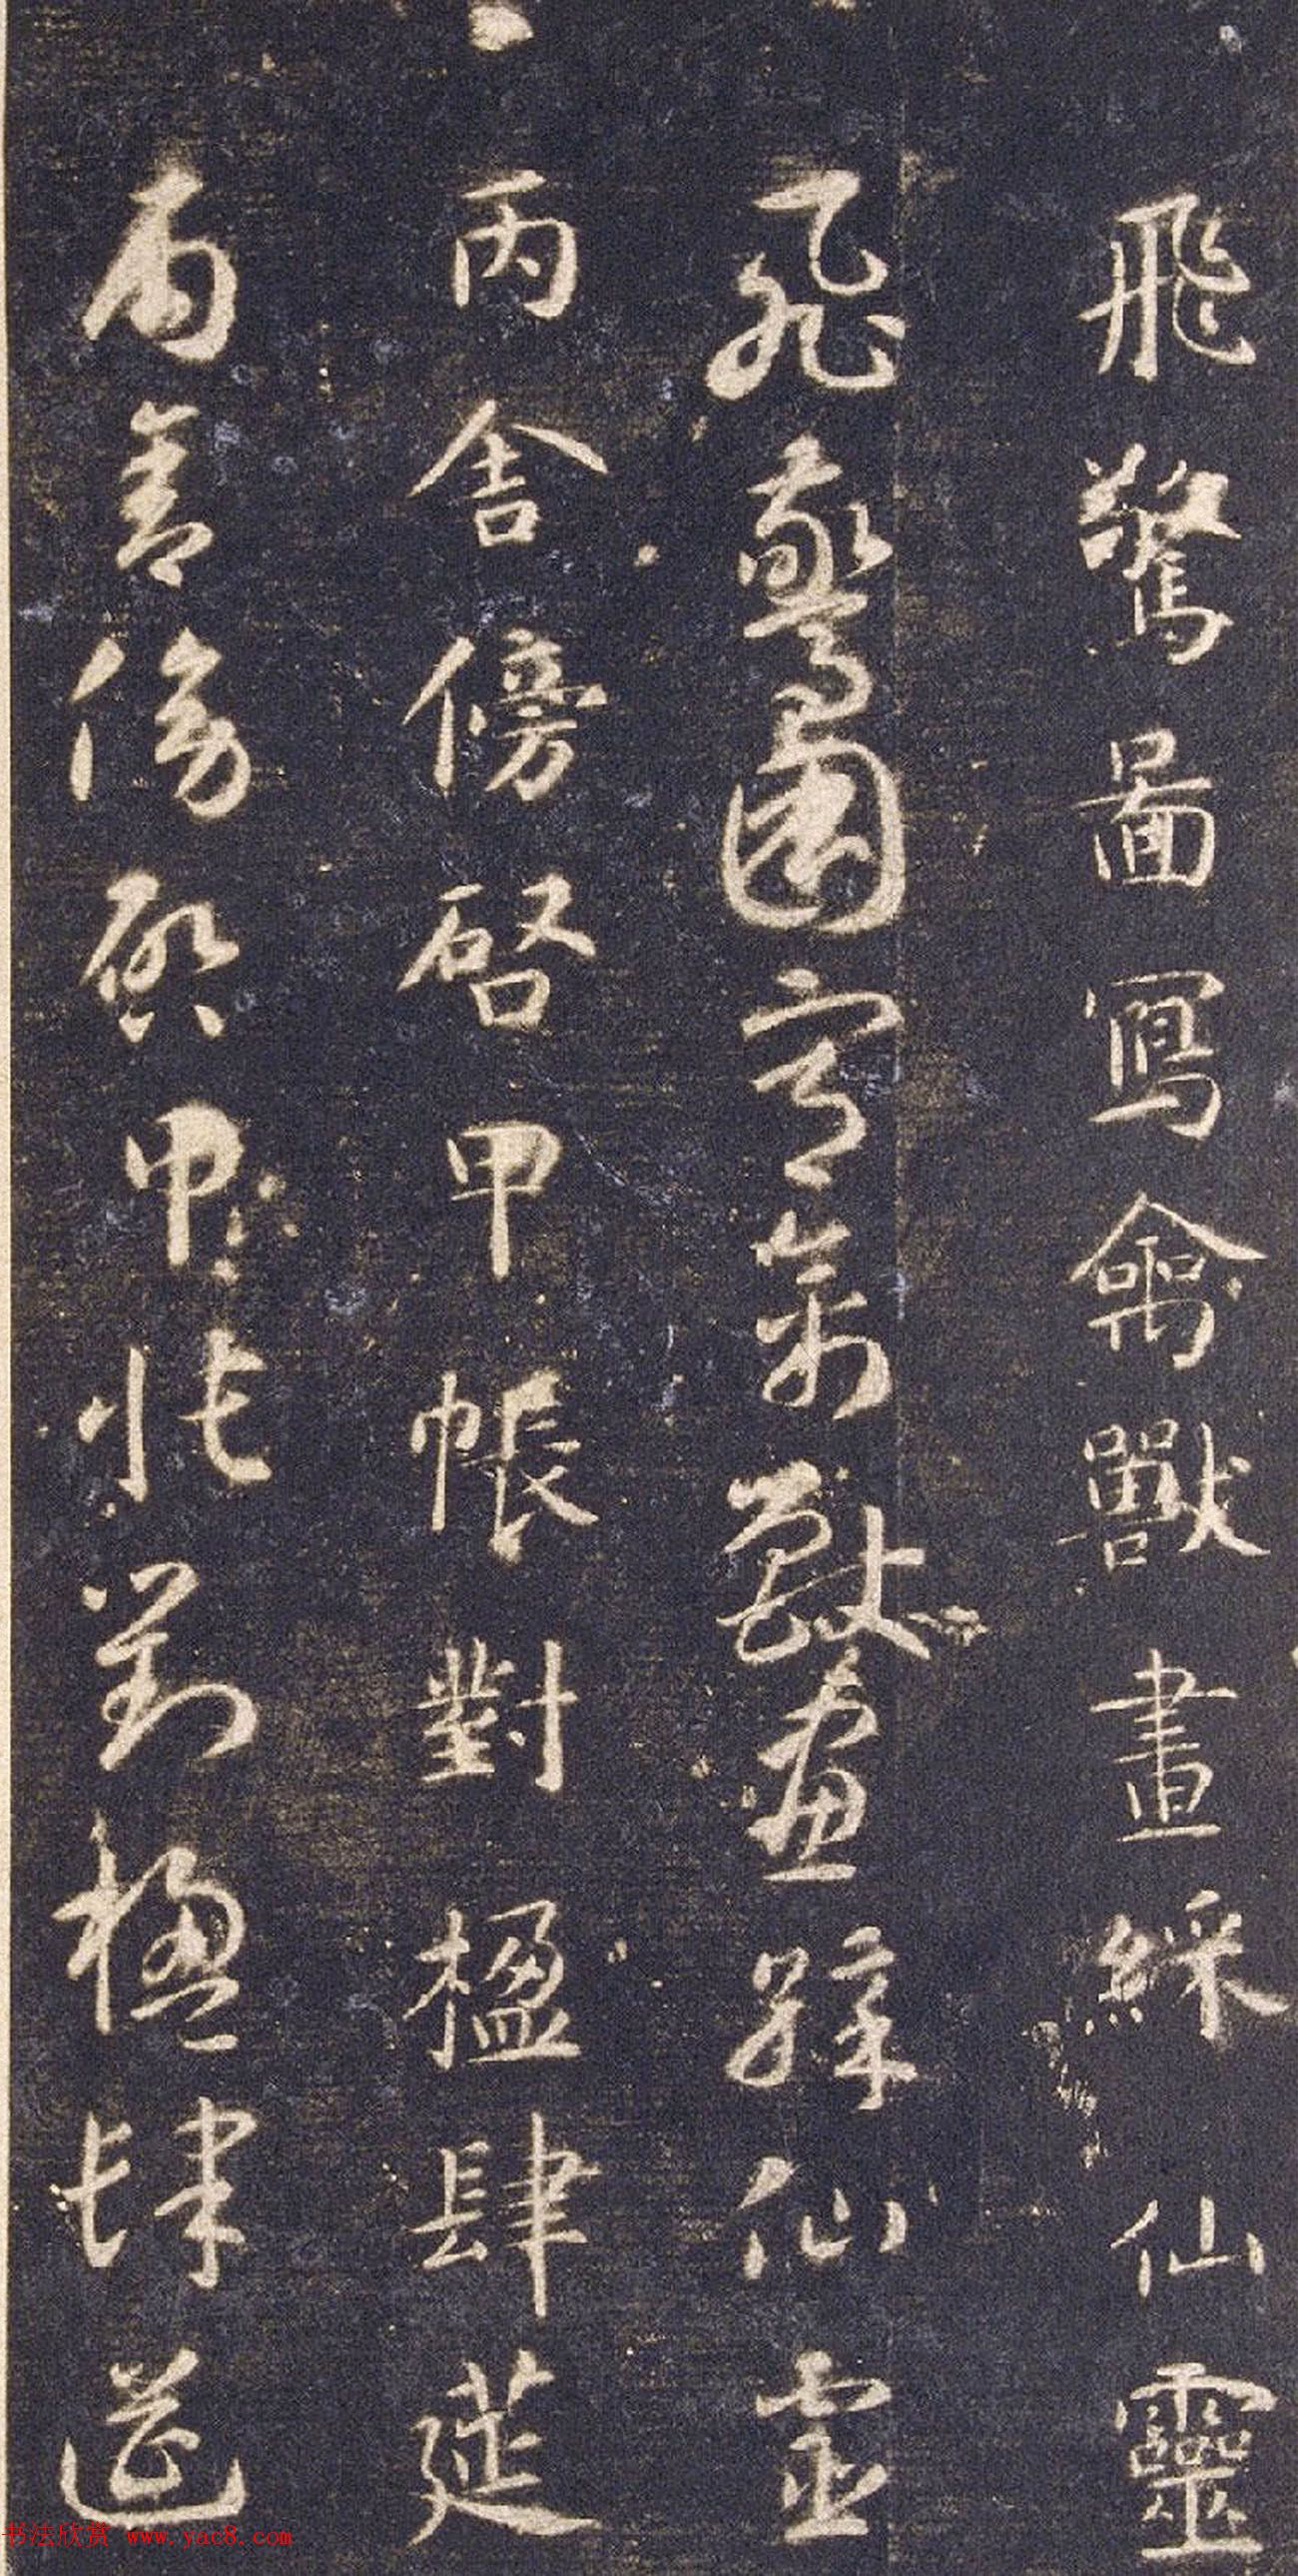 飛驚圖寫禽獸畫綵仙靈
飛驚圖寫禽獸畫綵仙靈
丙舍傍啓甲帳對楹肆莚
丙舍傍啓甲帳對楹肆筵
书法欣赏 www.yac8.com